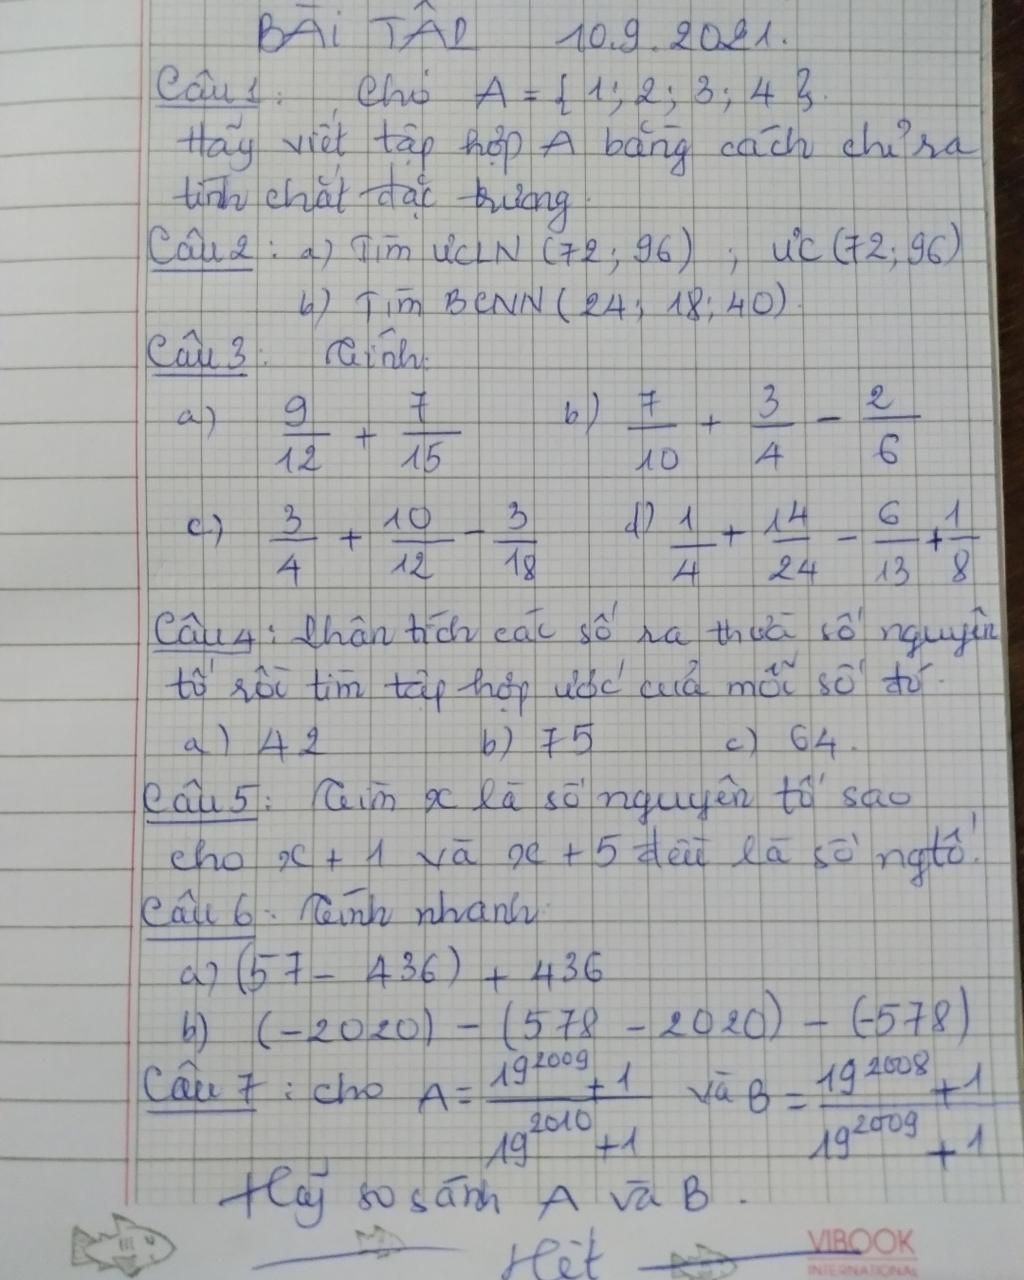 BÀI TẬP 10.9.2021.
Câu 1: Cho A = { 1; 2; 3; 4 }.
Hãy viết tập hợp A bằng cách chỉ ra
tính chất đặc trưng.
Câu 2: a) Tìm ƯCLN (72; 96) ; ƯC (72; 96)
b) Tìm BCNN (24; 18; 40).
Câu 3: Tính:
a) 9/12 + 7/15 b) 7/10 + 3/4 - 2/6
c) 3/4 + 10/12 - 3/18 d) 1/4 + 14/24 - 6/13 + 1/8
Câu 4: Phân tích các số ra thừa số nguyên
tố rồi tìm tập hợp ước của mỗi số đó.
a) 42 b) 75 c) 64.
Câu 5: Tìm x là số nguyên tố sao
cho x + 1 và x + 5 đều là số ngtố.
Câu 6: Tính nhanh:
a) (57 - 436) + 436
b) (-2020) - (578 - 2020) - (-578)
Câu 7: cho A = (19^2009 + 1)/(19^2010 + 1) và B = (19^2008 + 1)/(19^2009 + 1)
Hãy so sánh A và B.
Hết
VIBOOK
INTERNATIONAL